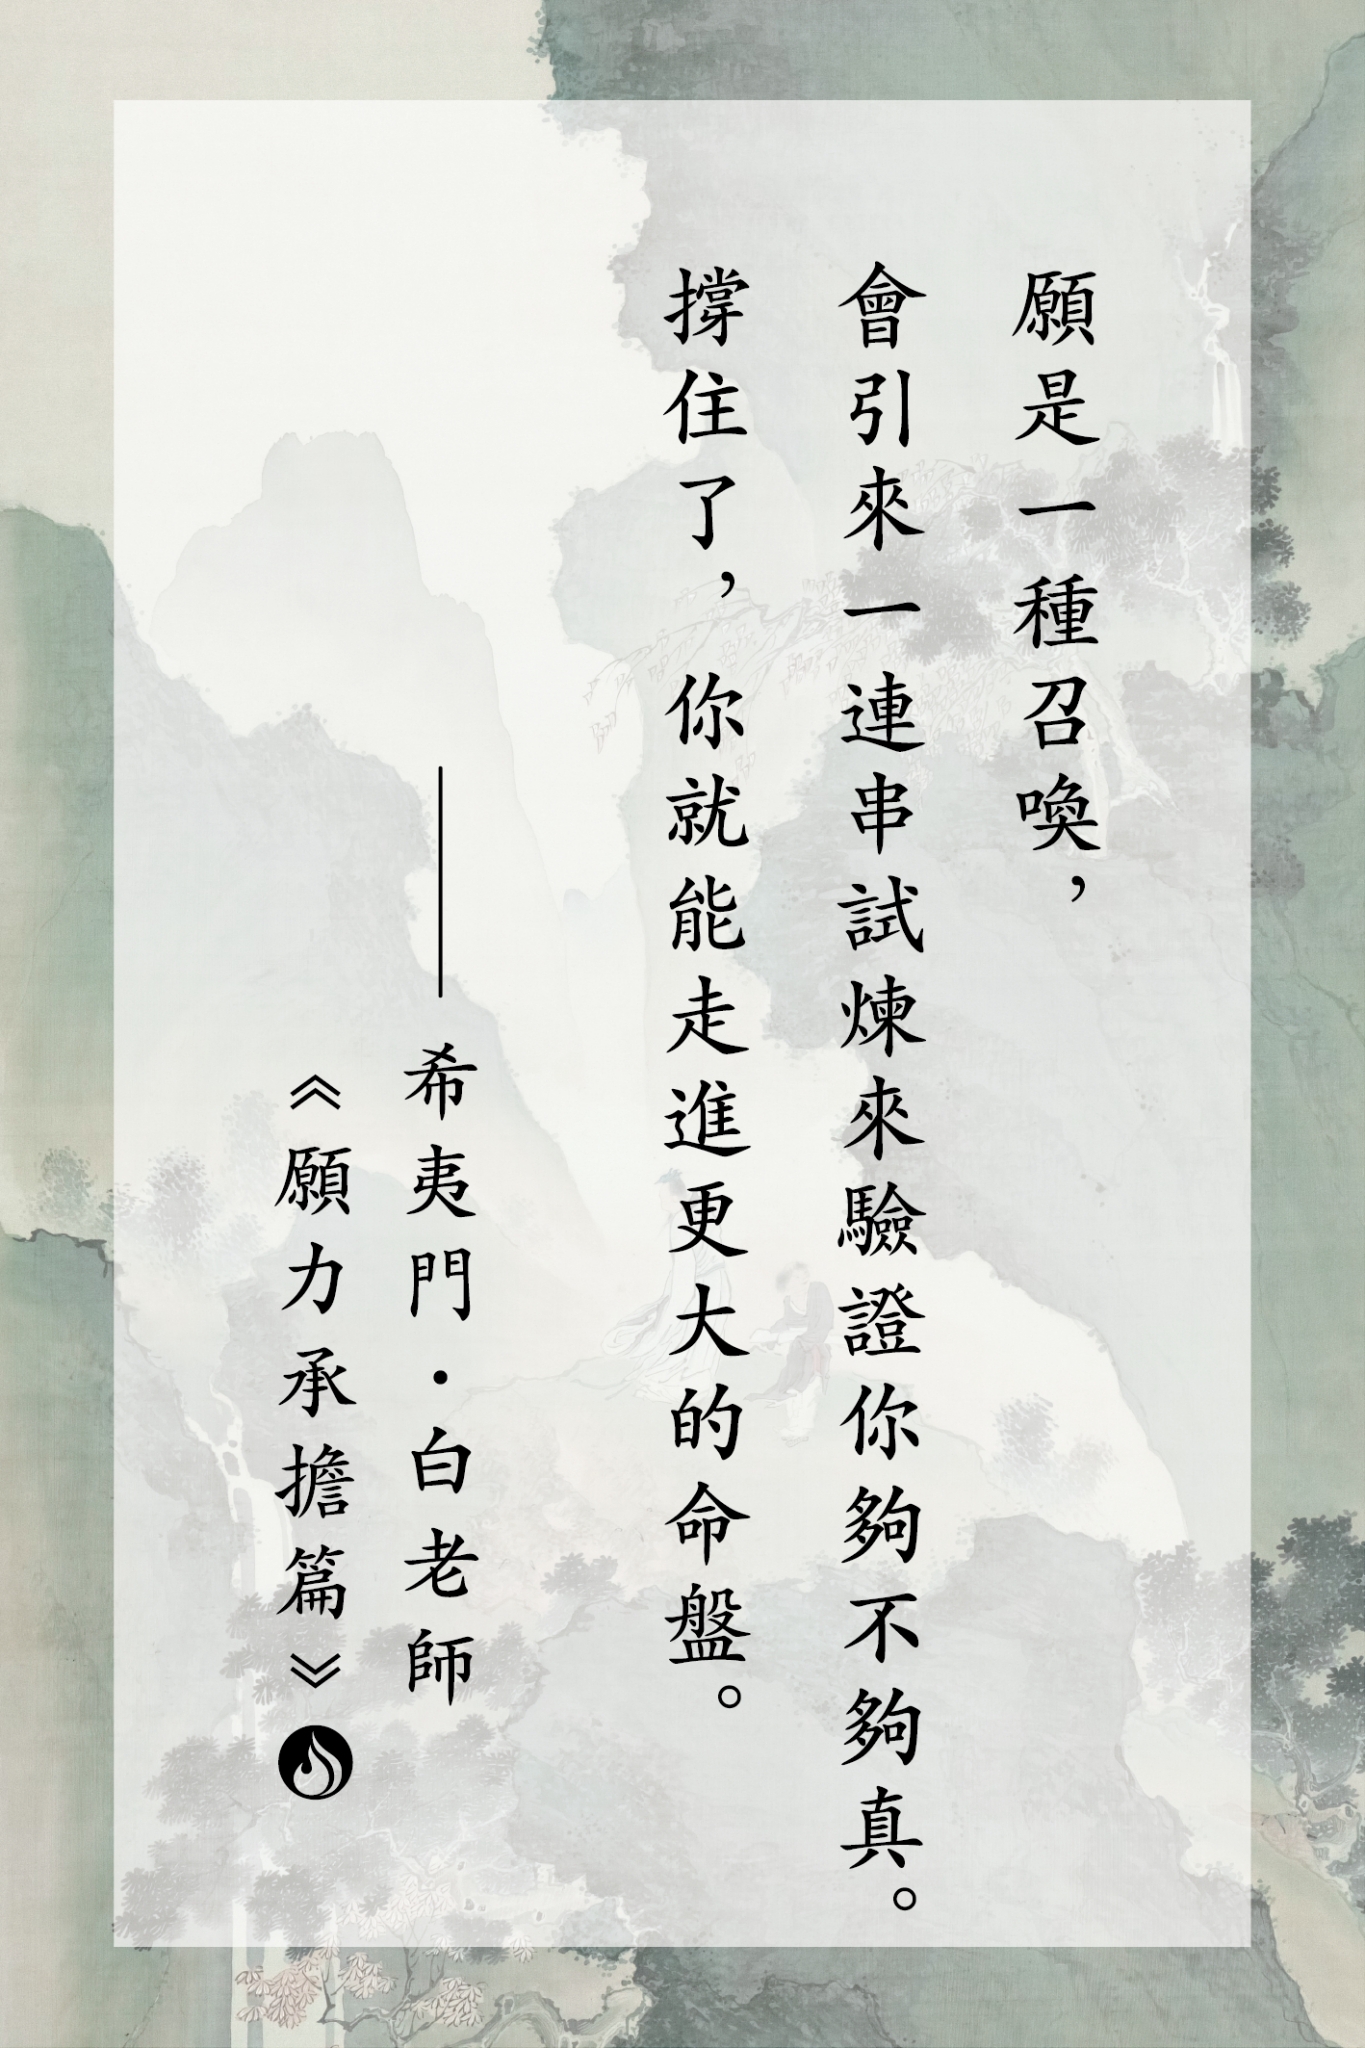 願是一種召喚，
會引來一連串試煉來驗證你夠不夠真。
撐住了，你就能走進更大的命盤。
——希夷門・白老師
《願力承擔篇》